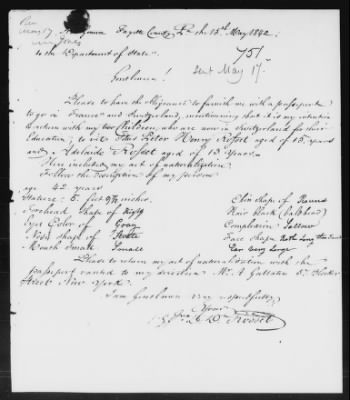 Rec
May 17
New Geneva Fayette County Pa the 15th May 1842;
to the Department of State.
751
Gentlemen!
Sent May 17.
Please to have the to furnish me with a passeporte
to go in France and Switzerland, mentionning that it is my intention
to return with my two Children, who are now in Switzerland for their
Education; to wit Peter Henry Rosset aged of 15. years
and Adelaide Rosset aged of 13 Years
Here included my act of naturalization
Follow the Description of my person
age 42 years
Stature: 5. feet 9½ inches.
Chin Shape of Round
Forehead Shape of High
Hair black (bald head)
Eyes Color of Gray
Complexion Sallow
Nose Shape of
Face Shape Rath Long
Mouth Small
Ears very Large
Please to return my act of naturalization with the
passeport wanted to my direction Mr. A Gallatin 57 Bleeker
Street New York.
I am Gentlemen very respectfully
Yours
Rosset